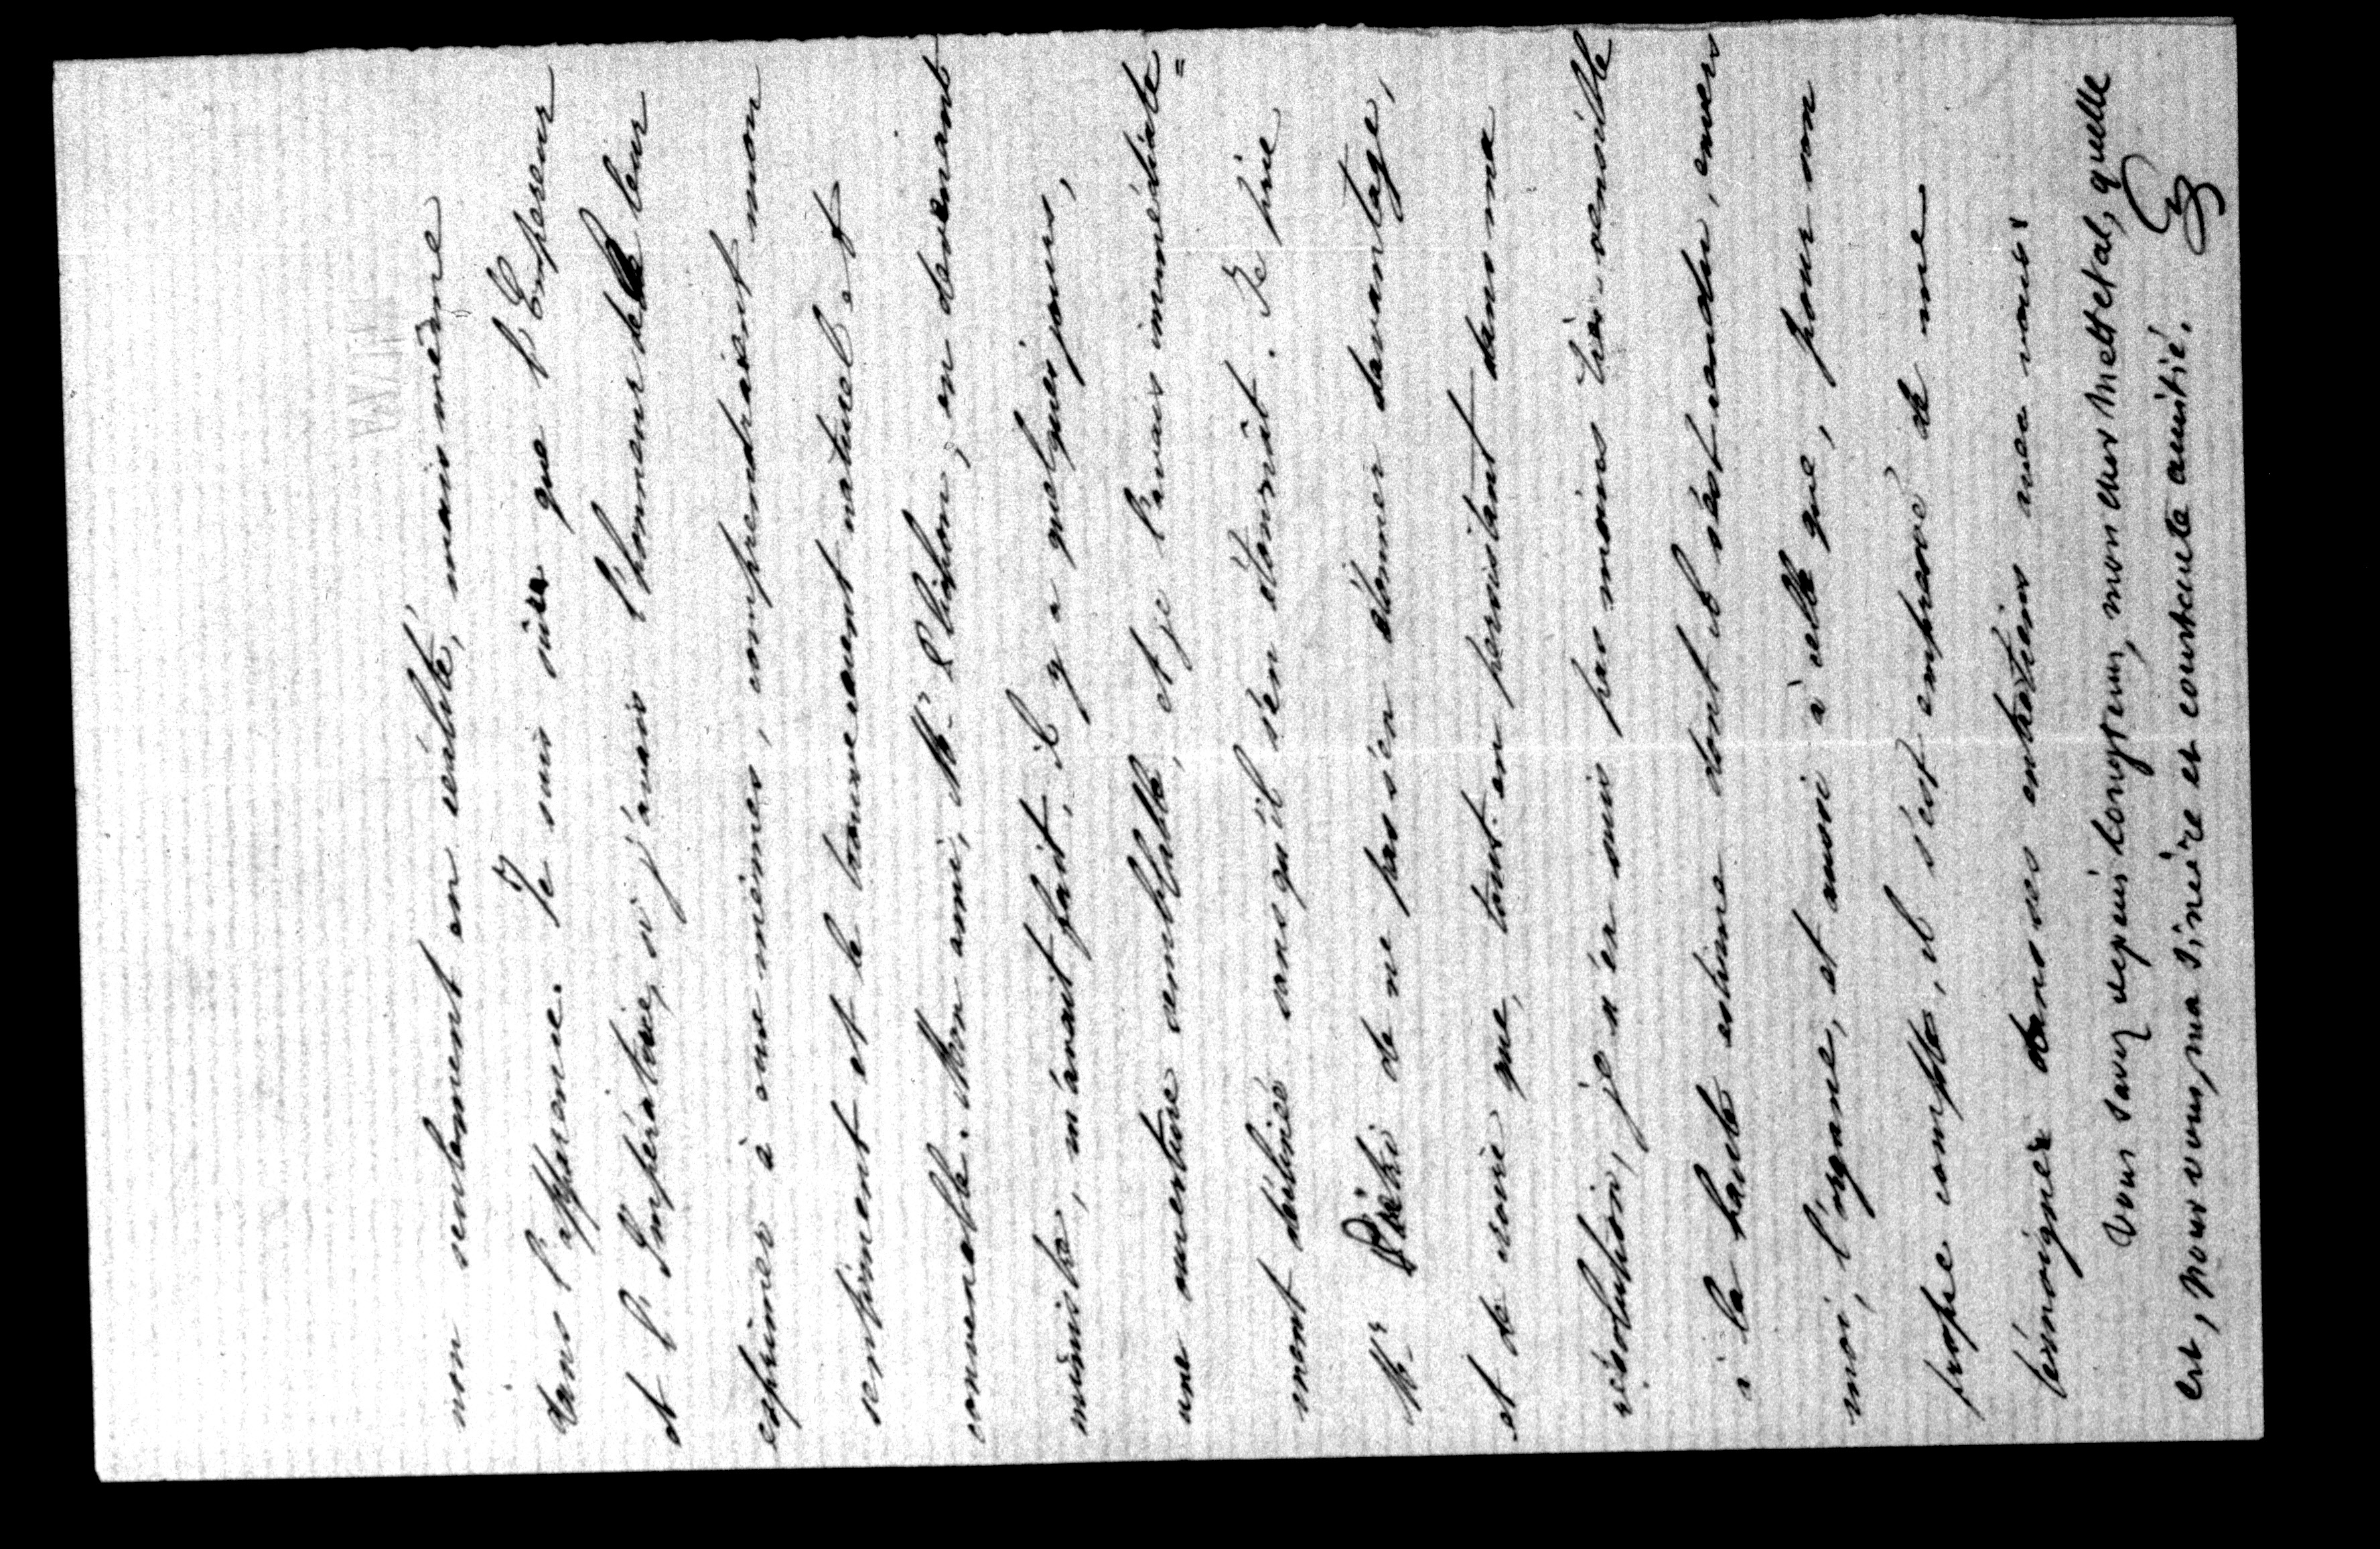 non seulement en réalité, mais même
dans l'apparence. Je suis sûr que l'Empereur
et l'Impératrice, si j'avais l'honneur de le leur
exprimer à eux mêmes, comprendraient mon
sentiment et le trouveraient naturel et
convenable. Mon ami, Mr. Plichon, en devenant
ministre, m'avait fait, il y a quelques jours,
une ouverture semblable, et je l'avais immédiate=
ment déclinée sans qu'il s'en étonnât. Je prie
Mr. Piétri de ne pas s'en étonner davantage,
et de croire que, tout en persistant dans ma
résolution, je n'en suis pas moins très sensible
à la haute estime dont il s'est rendu, envers
moi, l'organe, et aussi à celle que, pour son
propre compte, il s'est empressé de me
témoigner dans ses entretiens avec vous.
Vous savez depuis longtems, mon cher Mettetal, quelle
est, pour vous, ma sincère et constante amitié.